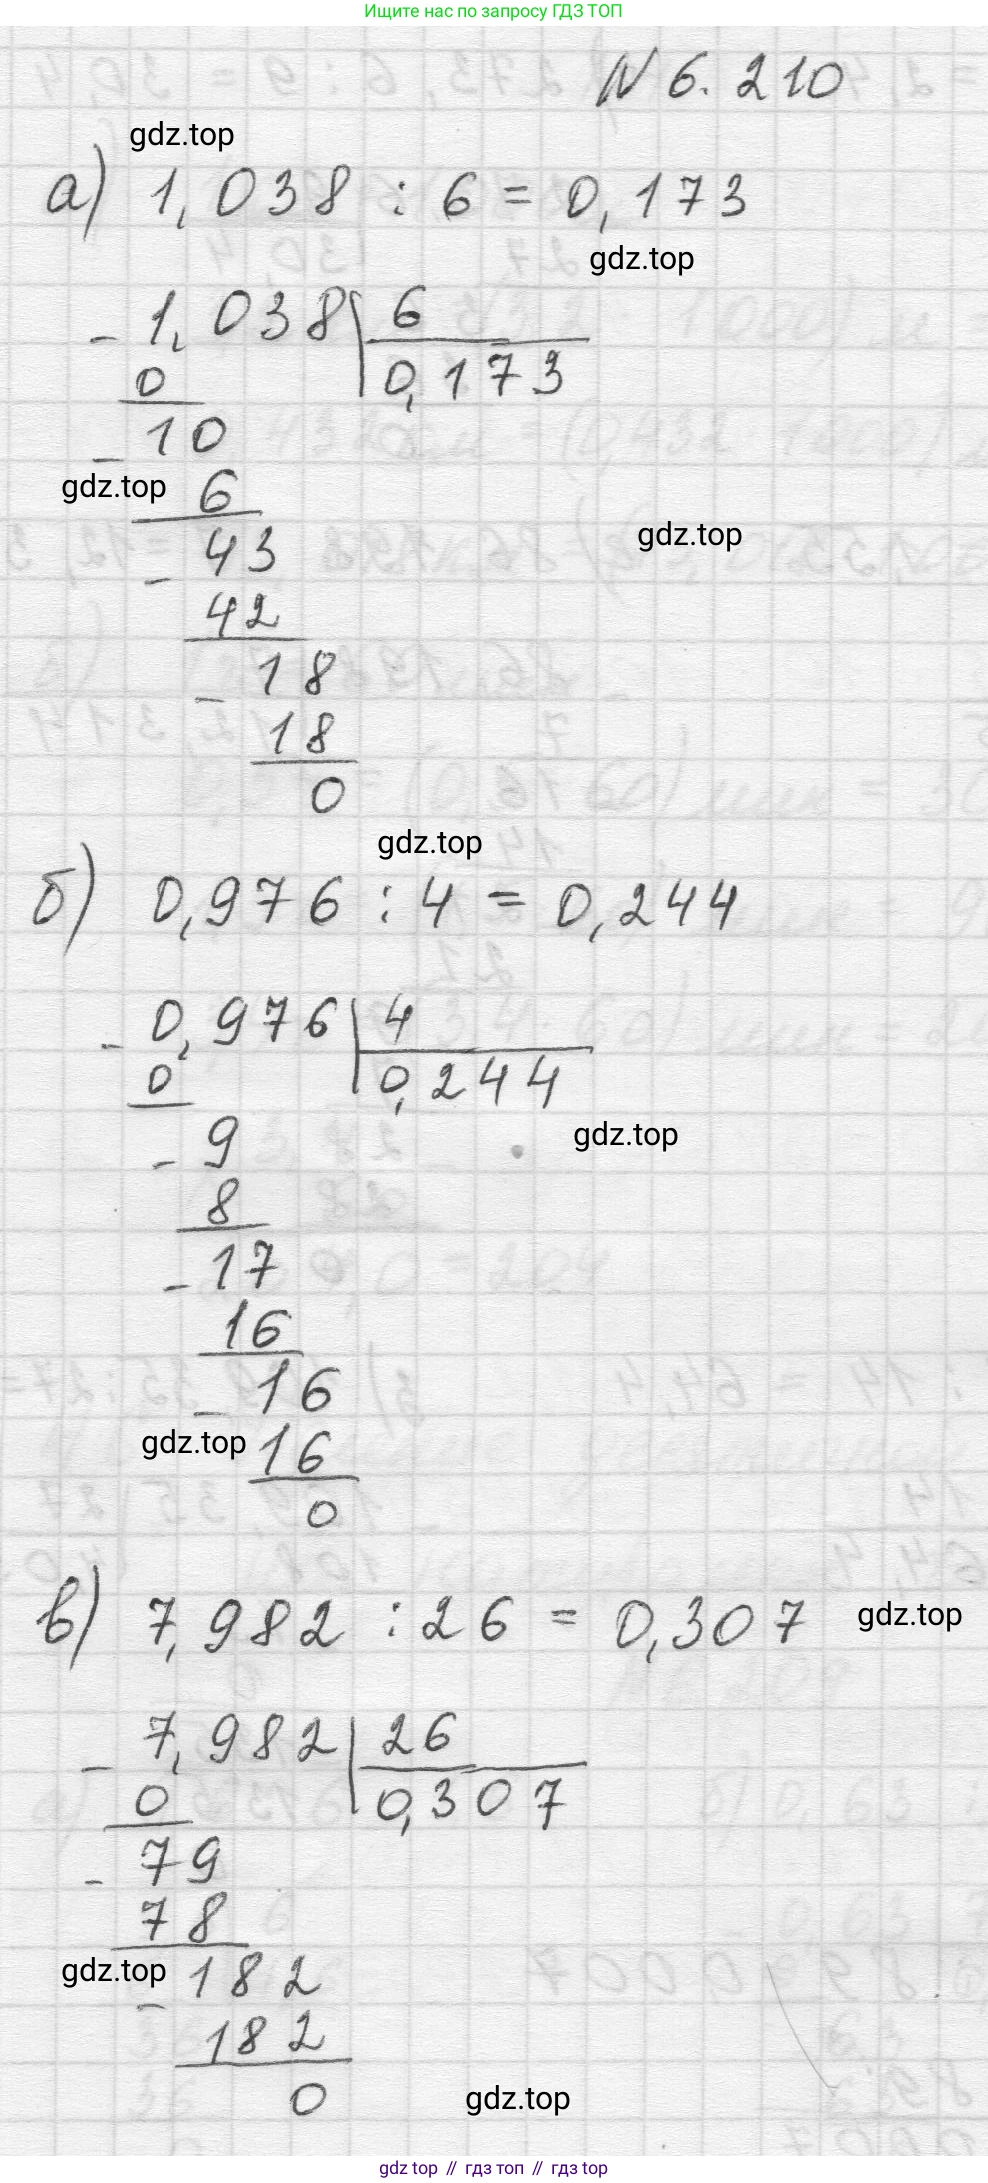 Ищите нас по запросу ГДЗ ТОП
N 6. 210
gdz.top
а) 1,038 : 6 = 0,173
gdz.top
- 1,038 | 6
0 | 0,173
- 10
gdz.top 6
gdz.top
- 43
42
- 18
18
0
gdz.top
б) 0,976 : 4 = 0,244
- 0,976 | 4
0 | 0,244
gdz.top
- 9
8
- 17
16
- 16
gdz.top 16
0
в) 7,982 : 26 = 0,307 gdz.top
- 7,982 | 26
0 | 0,307
- 79
78
gdz.top - 182
182
0
gdz.top
gdz top // гдз топ // gdz top